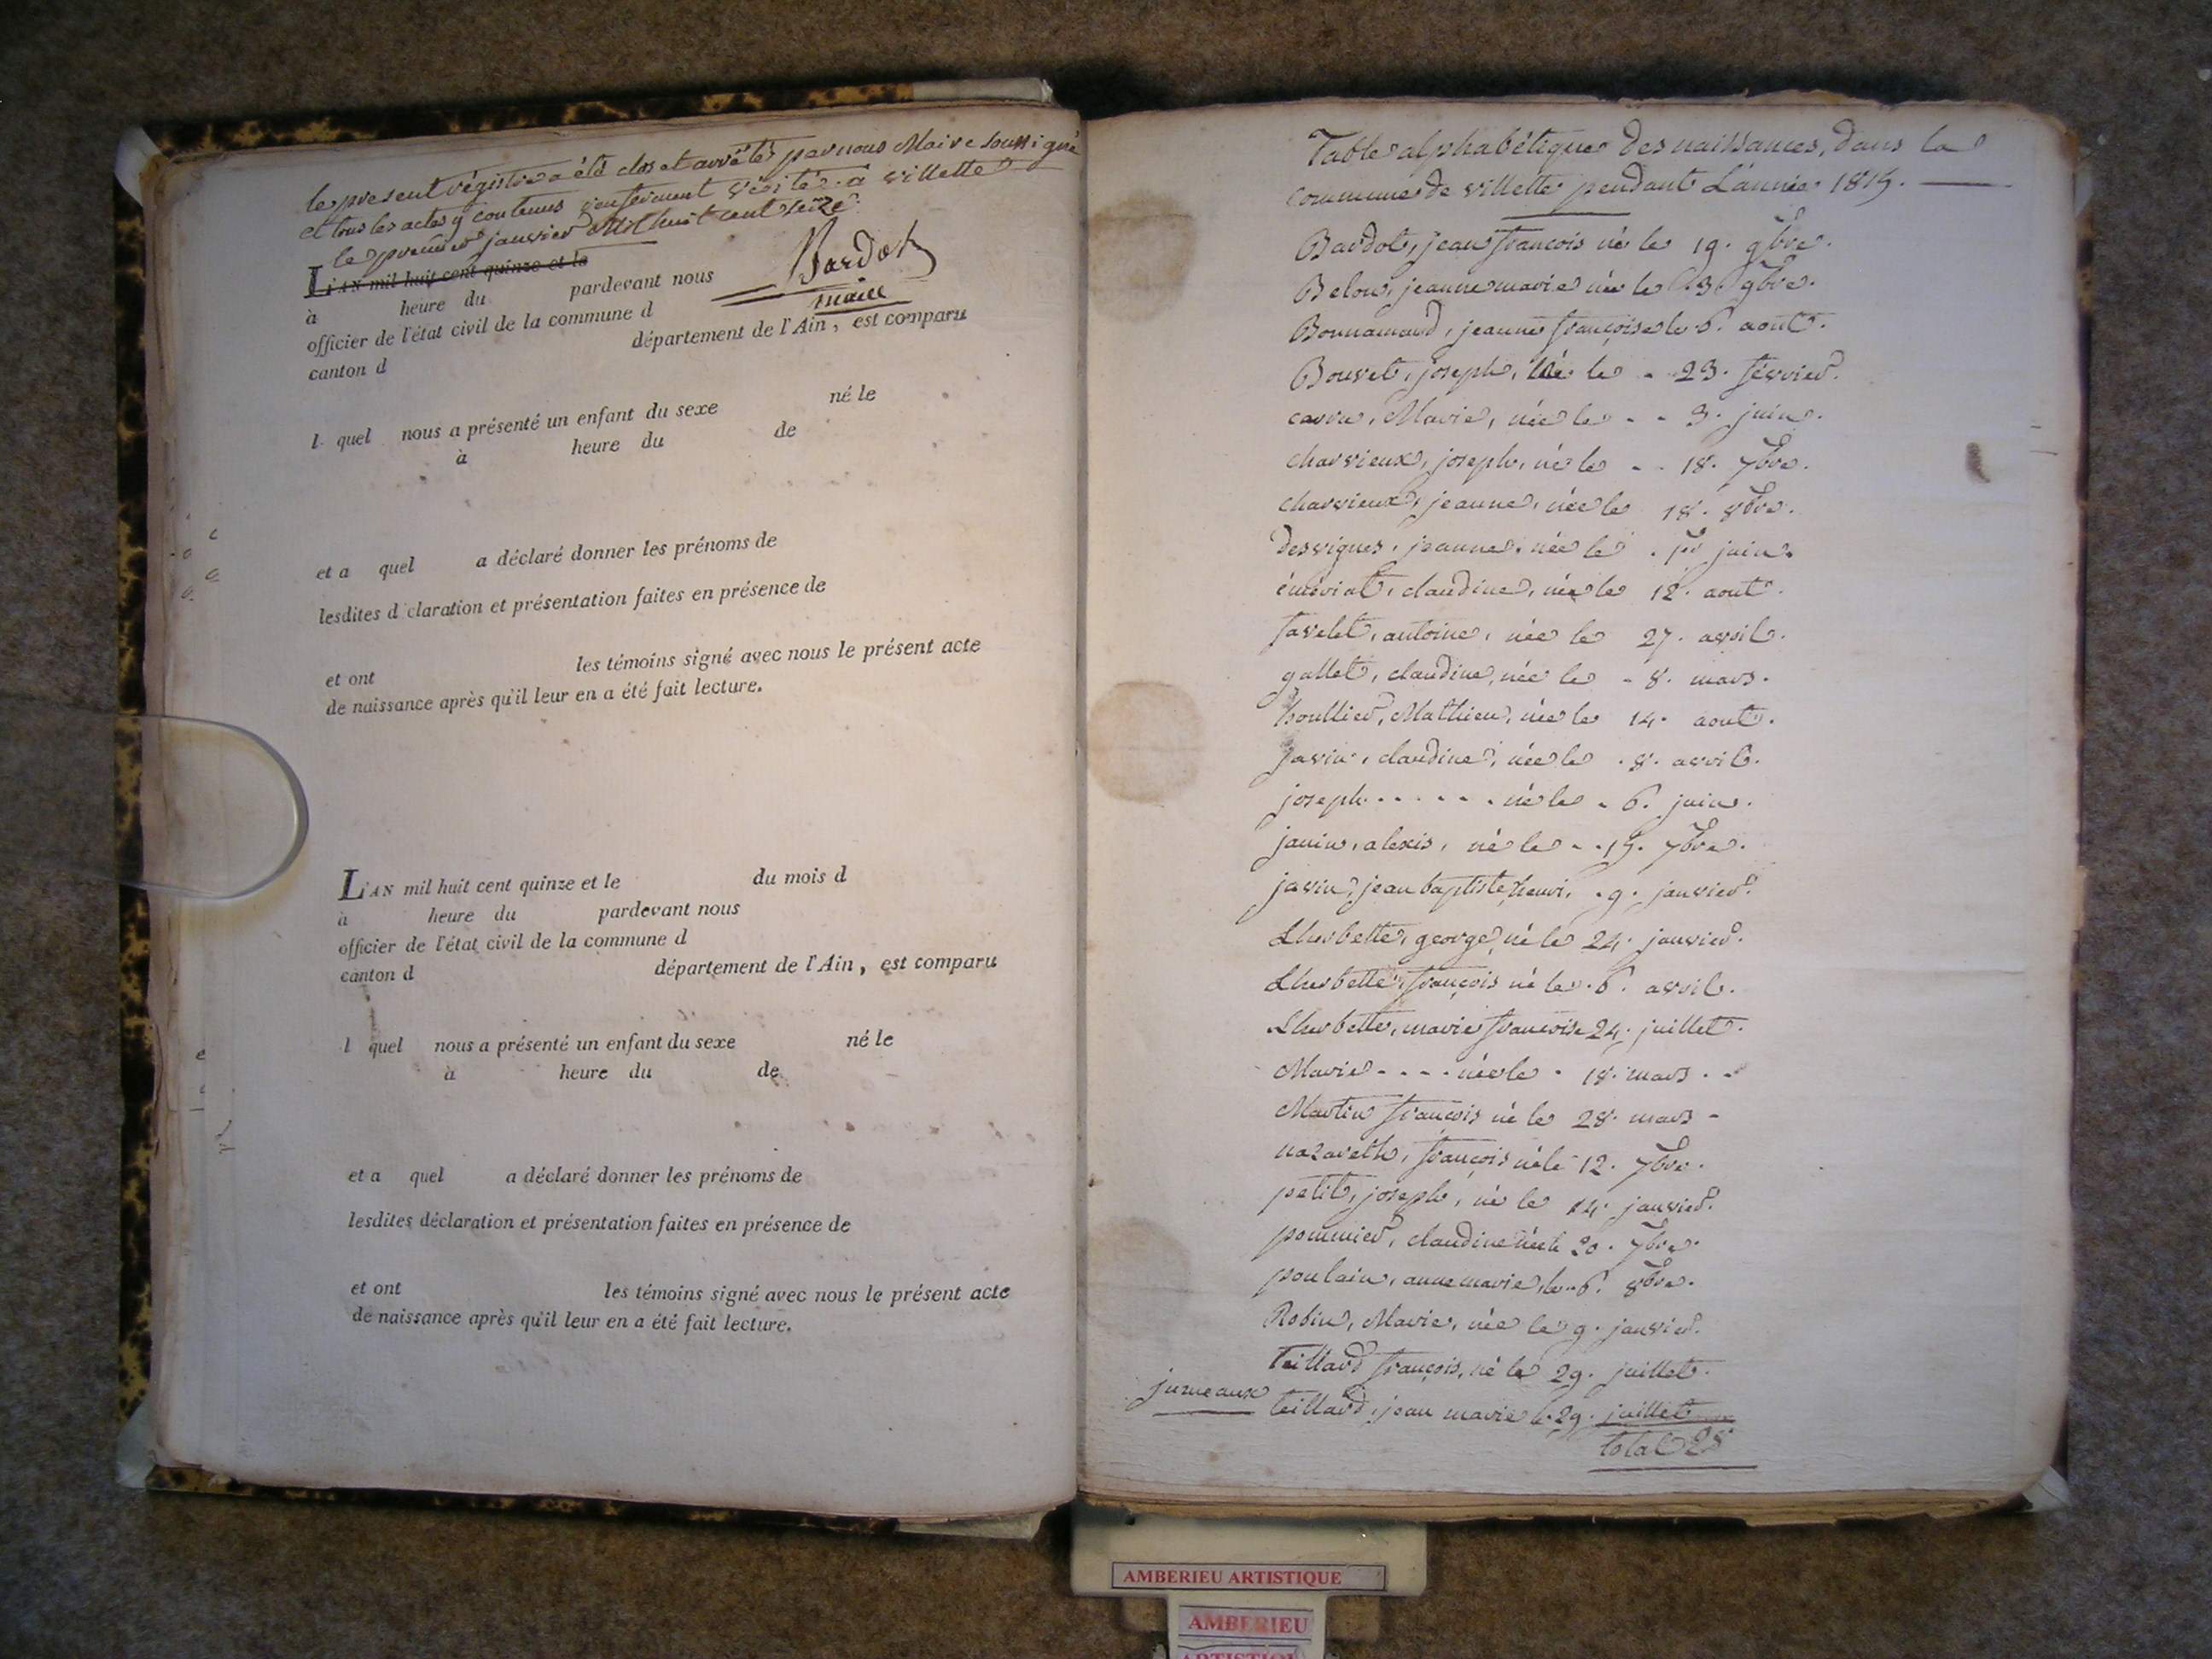 le present régistre a été clos et arrêtés par nous Maire soussigné
et tous les actes y contenus renferment vérité. à villette
le premier janvier Mil huit cent seize.
Bardot
maire
L'AN mil huit cent quinze et le
à heure du pardevant nous
officier de l'état civil de la commune d
canton d département de l'Ain, est comparu
l quel nous a présenté un enfant du sexe né le
à heure du de
et a quel a déclaré donner les prénoms de
lesdites d claration et présentation faites en présence de
et ont les témoins signé avec nous le présent acte
de naissance après qu'il leur en a été fait lecture.
L'AN mil huit cent quinze et le du mois d
à heure du pardevant nous
officier de l'état civil de la commune d
canton d département de l'Ain, est comparu
l quel nous a présenté un enfant du sexe né le
à heure du de
et a quel a déclaré donner les prénoms de
lesdites déclaration et présentation faites en présence de
et ont les témoins signé avec nous le présent acte
de naissance après qu'il leur en a été fait lecture.
Table alphabétique des naissances, dans la
commune de villette pendant L'année 1815.
Bardot, jean francois né le 19. 9bre.
Belon, jeanne marie née le 3 9bre.
Bonnamand, jeanne françoise le 6. août.
Bouvet, joseph, né le 23. février.
carru, Marie, née le 3. juin.
charvieux, joseph, né le 18. 7bre.
charvieux, jeanne, née le 18. 8bre.
desvignes, jeanne, née le 1er juin.
émériat, claudine, née le 12. aout.
favelet, antoine, née le 27. avril.
gallet, claudine, née le 8. mars.
houllier, Mathieu, née le 14. aout.
javin, claudine, née le 8. avril.
joseph . . . . . . né le 6. juin.
janin, alexis, né le 15. 7bre.
javin, jean baptiste henri, 9. janvier.
Lherbette, george né le 24. janvier.
Lherbette, françois né le 6. avril.
Lherbette, marie francoise 24. juillet.
Marie - - - - née le 18. mars
Martin françois né le 28. mars
nazareth, françois né le 12. 7bre.
petit, joseph, né le 14. janvier.
pommier, claudine née le 20. 7bre.
poulain, anne marie, le 6. 8bre.
Robin, Marie, née le 9. janvier.
Teillard françois, né le 29. juillet.
jumeaux teillard, jean marie le 29. juillet
total 28
AMBERIEU ARTISTIQUE
AMBERIEU
ARTISTIQUE